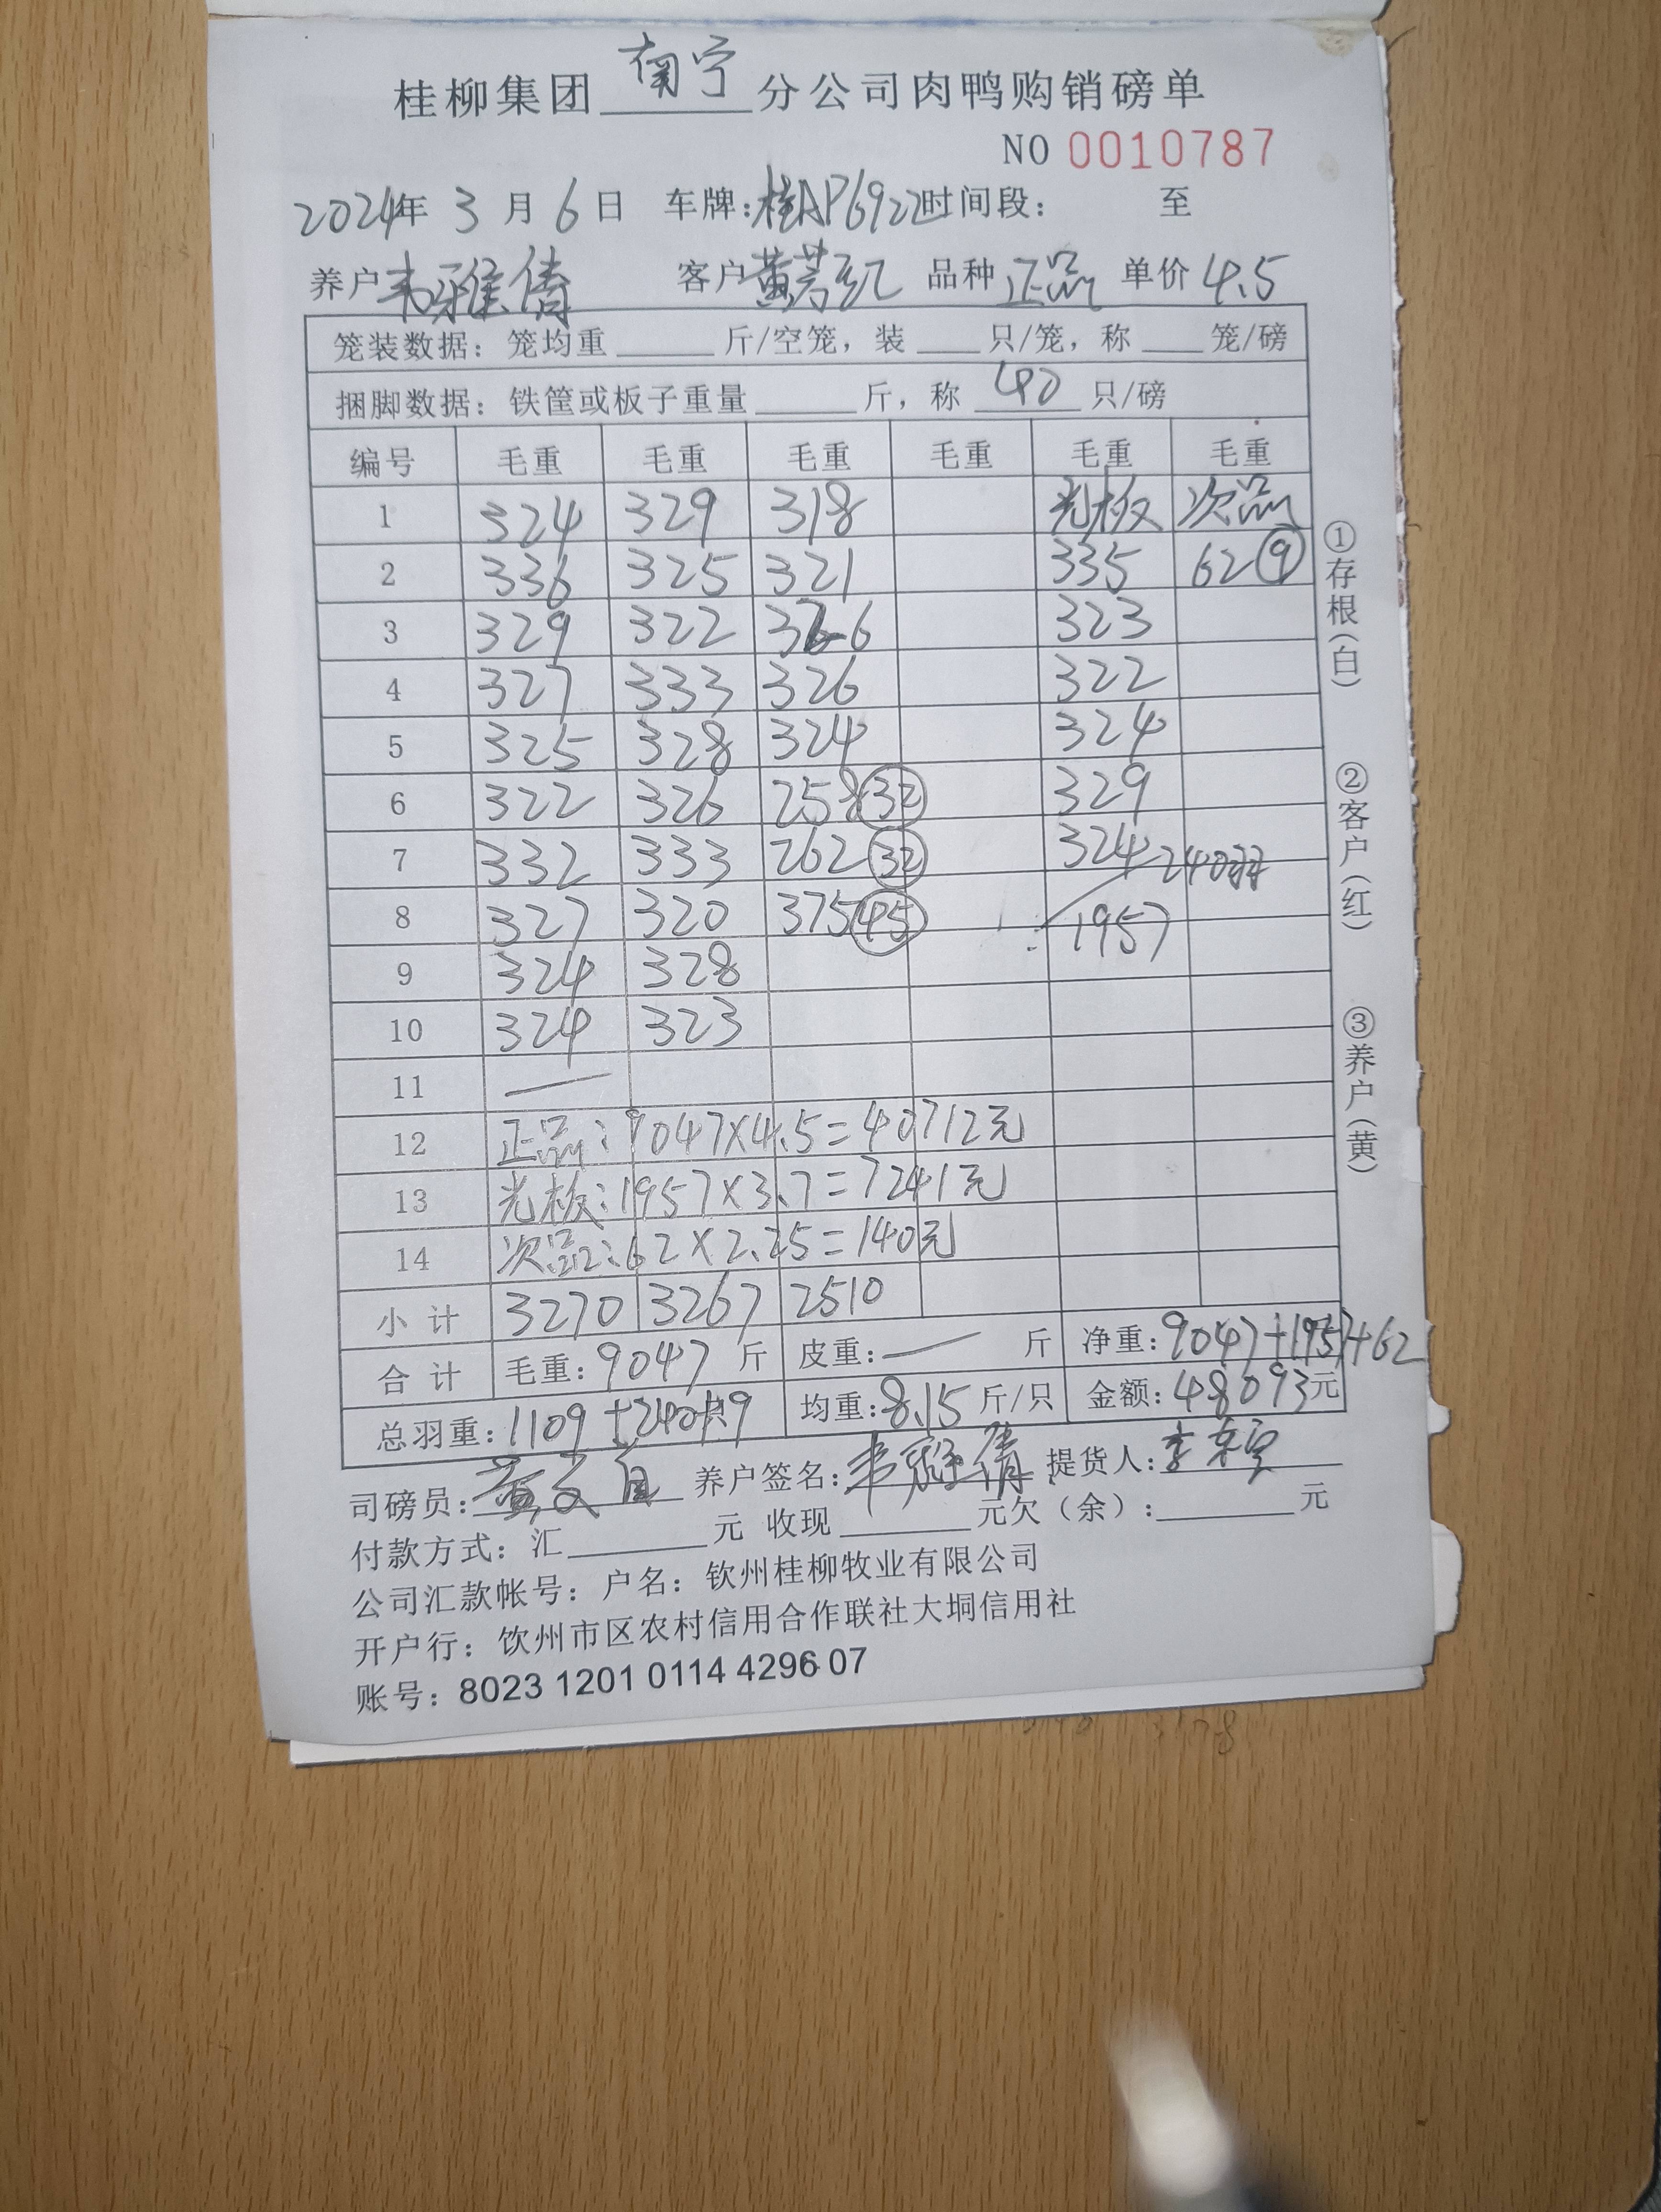 桂柳集团 南宁 分公司肉鸭购销磅单
NO 0010787
2024年 3 月 6 日 车牌:桂AP6922 时间段: 至
养户 韦雅倩 客户 黄芳红 品种 正品 单价 4.5
笼装数据: 笼均重 ____ 斤/空笼, 装 ____ 只/笼, 称 ____ 笼/磅
捆脚数据: 铁筐或板子重量 ____ 斤, 称 40 只/磅
编号 毛重 毛重 毛重 毛重 毛重 毛重
1 324 329 318 光板 次品
2 336 325 321 335 62 ⑨
3 329 322 326 323
4 327 333 326 322
5 325 328 324 324
6 322 326 258 ㉜ 329
7 332 333 262 ㉜ 324 240羽
8 327 320 375 ㊺ 1957
9 324 328
10 324 323
11 —
12 正品:9047×4.5=40712元
13 光板:1957×3.7=7241元
14 次品:62×2.25=140元
小 计 3270 3267 2510
合 计 毛重:9047 斤 皮重:— 斤 净重:9047+1957+62
总羽重:1109+240+9 均重:8.15 斤/只 金额:48093元
司磅员: 养户签名:韦雅倩 提货人:
付款方式: 汇 ____ 元 收现 ____ 元欠(余):____ 元
公司汇款帐号: 户名: 钦州桂柳牧业有限公司
开户行: 饮州市区农村信用合作联社大垌信用社
账号: 8023 1201 0114 4296 07
①存根(白) ②客户(红) ③养户(黄)